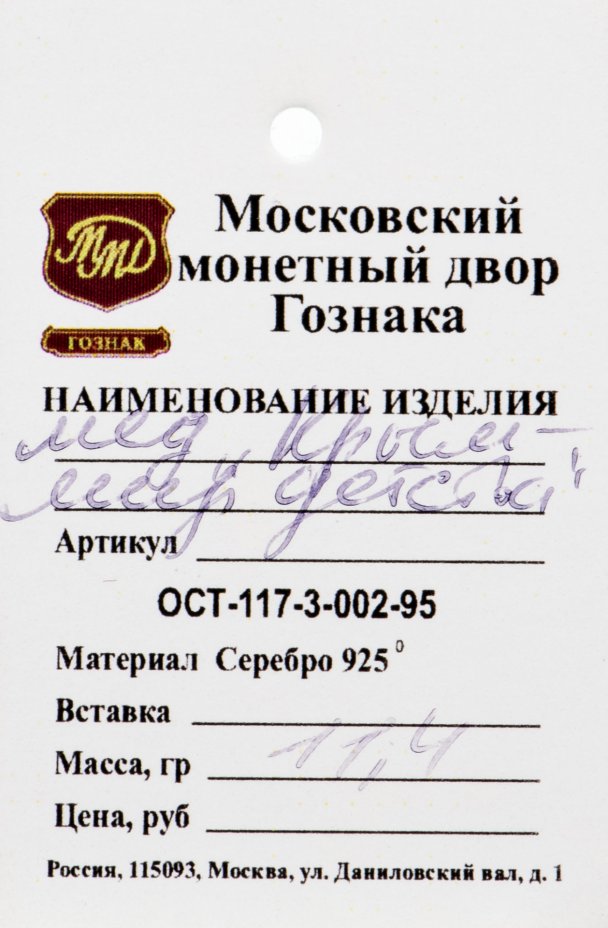 Московский
монетный двор
Гознака
ММД
ГОЗНАК
НАИМЕНОВАНИЕ ИЗДЕЛИЯ
мед. „Крым –
мир детства"
Артикул
ОСТ-117-3-002-95
Материал Серебро 925⁰
Вставка
Масса, гр 11,4
Цена, руб
Россия, 115093, Москва, ул. Даниловский вал, д. 1